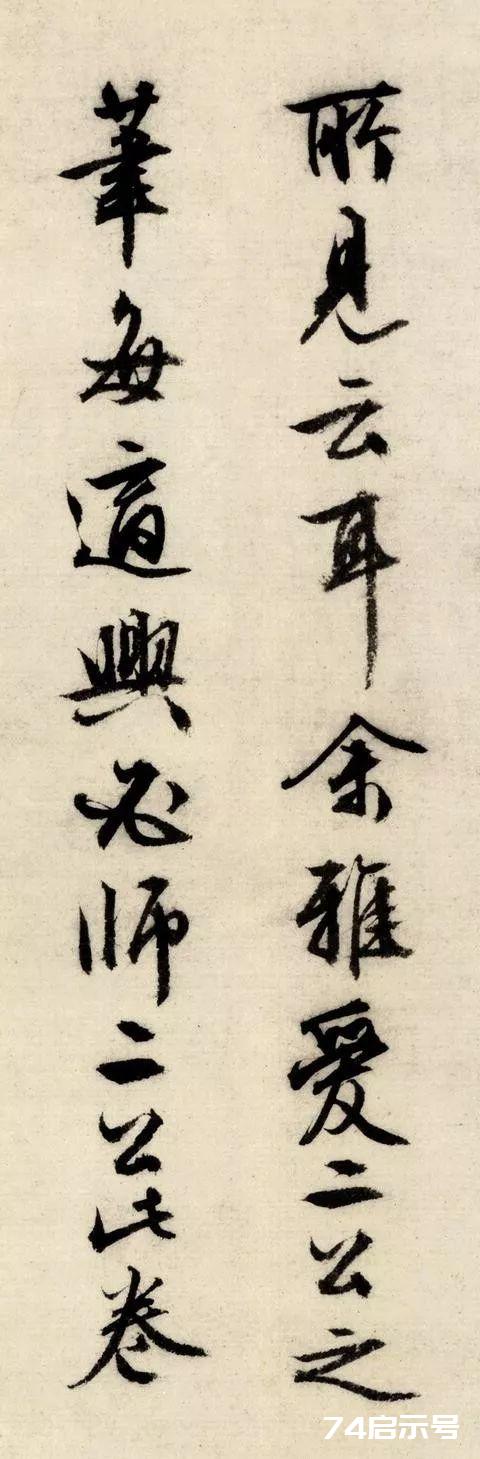 所見云耳余雅愛二公之
筆每適興必師二公此卷
74启示号